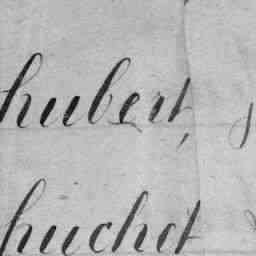 hubert,
huchet